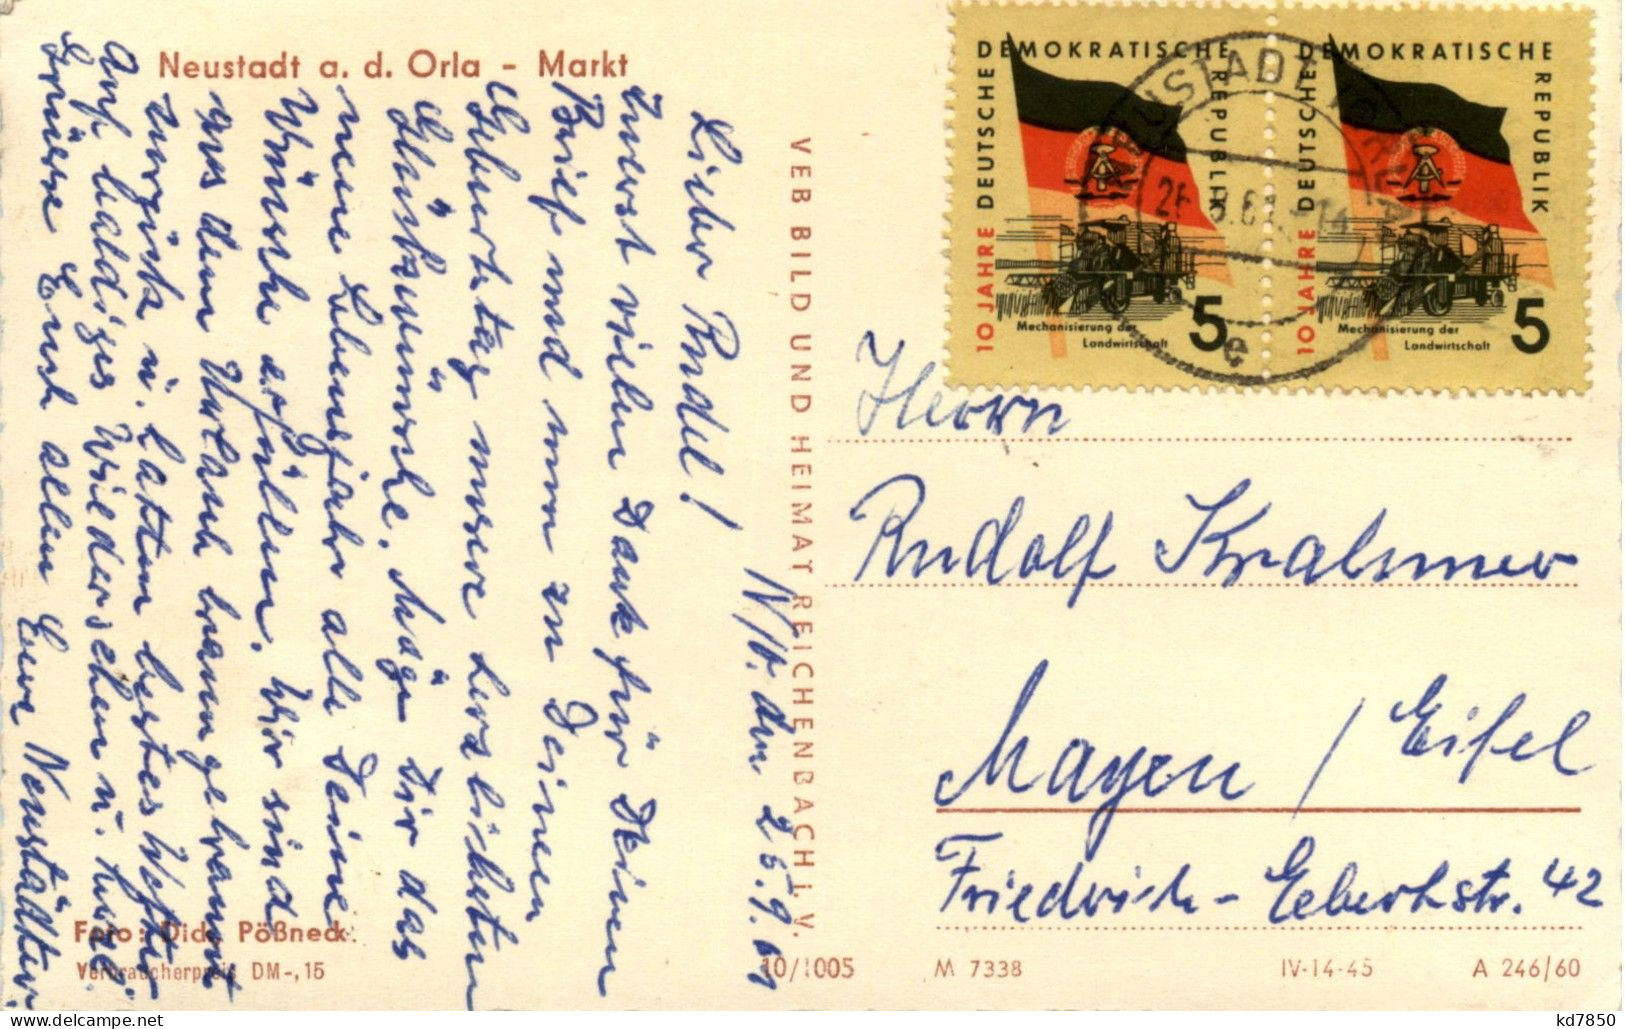 Neustadt a. d. Orla - Markt
N/O. den 25.9.60
Lieber Rudel!
Zuerst vielen Dank für Deinen
Brief und nun zu Deinem
Geburtstag unsere herzlichsten
Glückwünsche. Möge Dir das
neue Lebensjahr alle Deine
Wünsche erfüllen. Wir sind
aus dem Urlaub braun gebrannt
zurück u. hatten bestes Wetter
Auf baldiges Wiedersehen u.
Grüsse Euch allen Eure Neustädter.
Foto: Dick, Pößneck
Verbraucherpreis DM -,15
VEB BILD UND HEIMAT REICHENBACH I. V.
10/1005
DEUTSCHE DEMOKRATISCHE REPUBLIK
10 JAHRE
Mechanisierung der
Landwirtschaft
5
DEUTSCHE DEMOKRATISCHE REPUBLIK
10 JAHRE
Mechanisierung der
Landwirtschaft
5
NEUSTADT (ORLA)
e
Herrn
Rudolf Kralsmer
Mayen / Eifel
Friedrich-Eberhstr. 42
M 7338
IV-14-45
A 246/60
kd7850